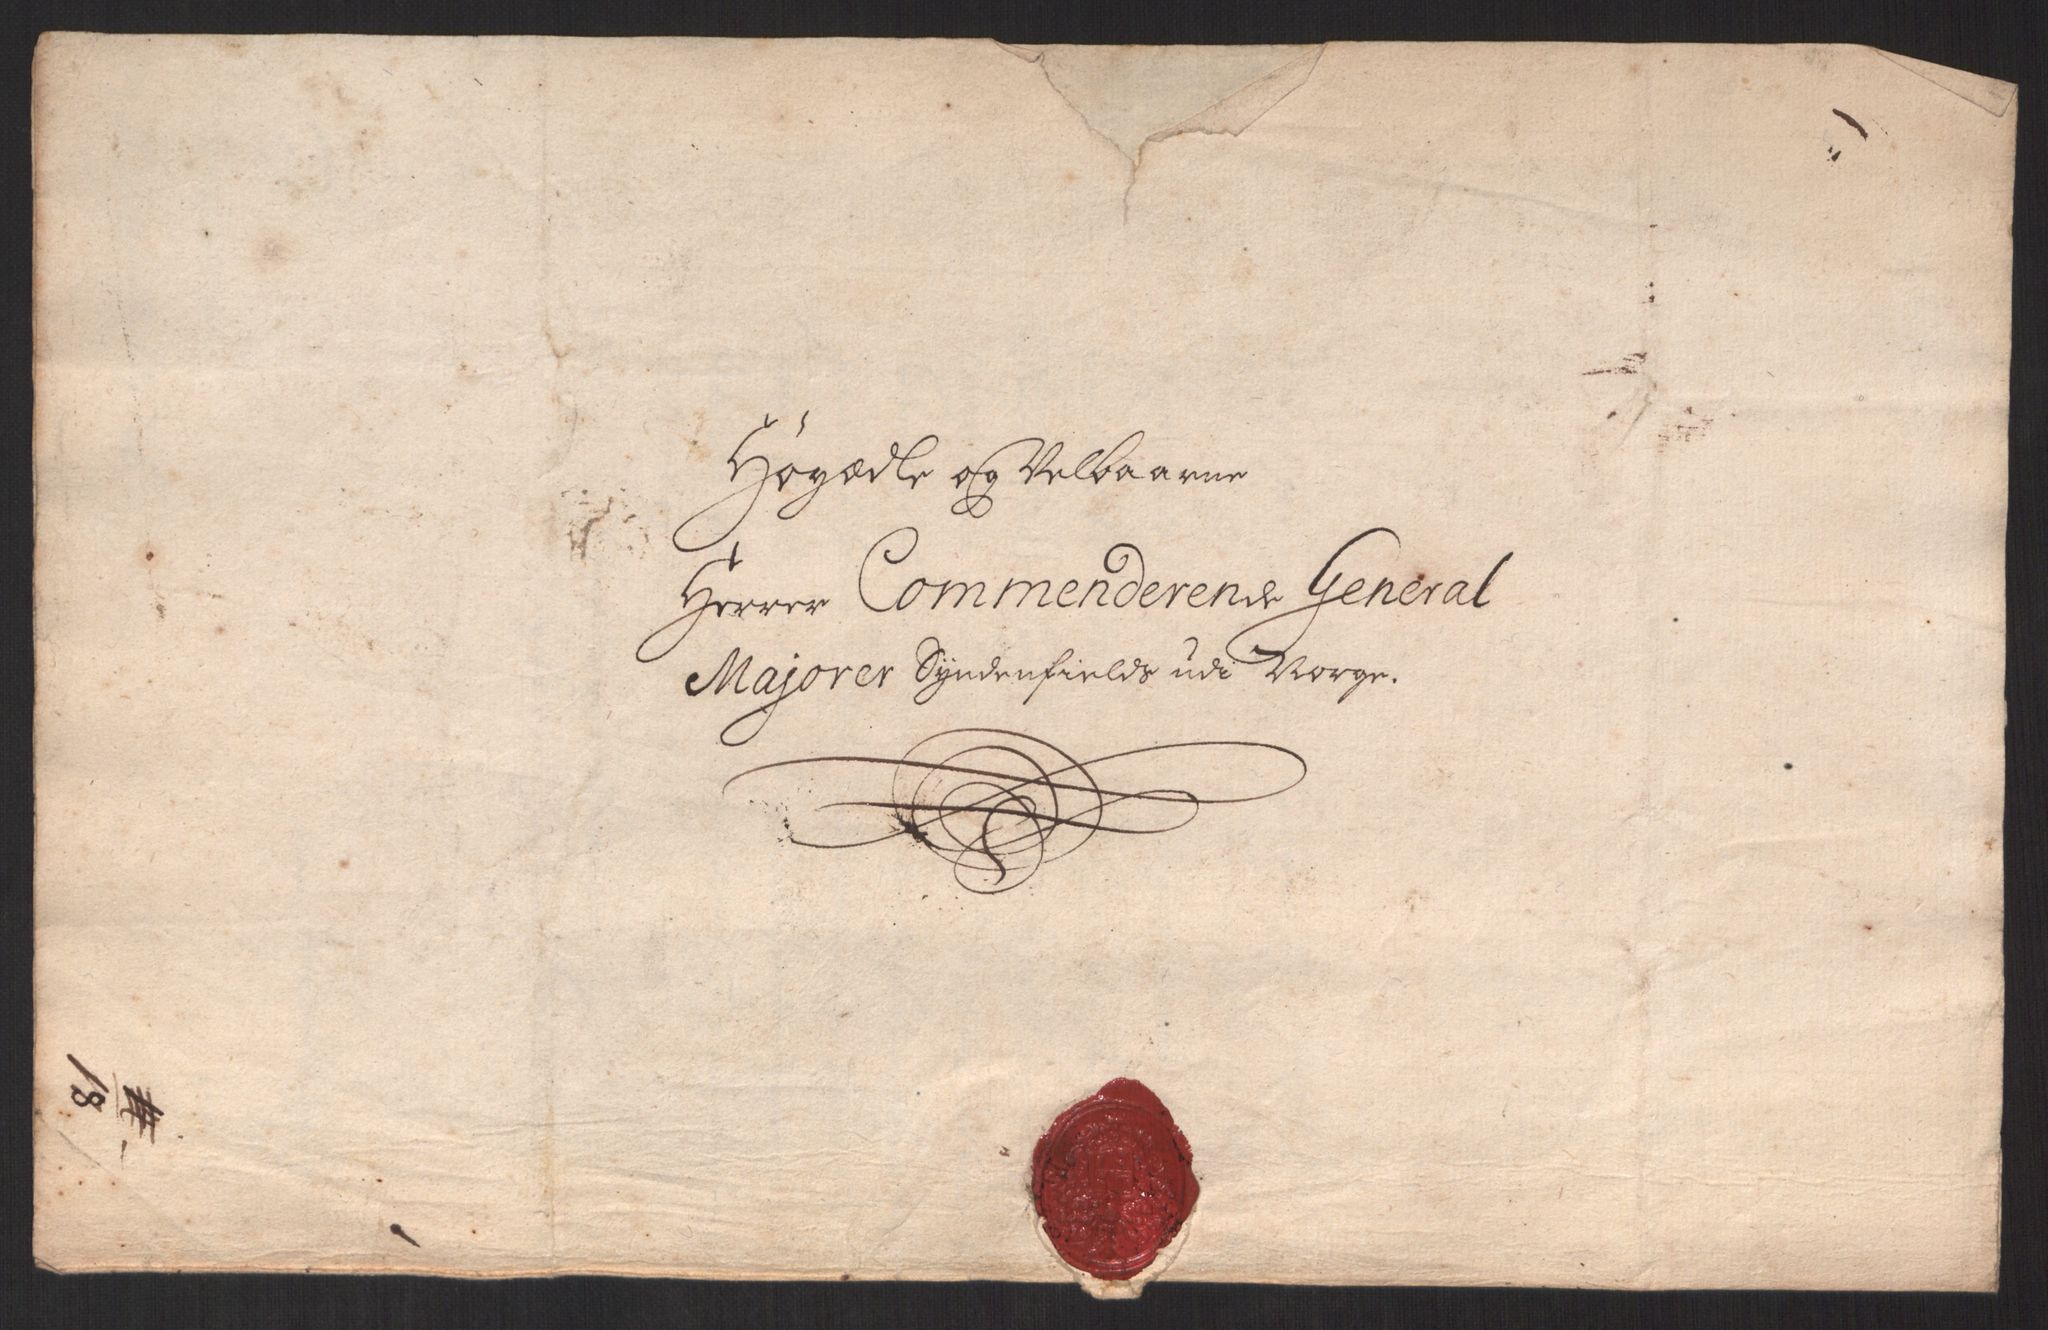 Höyædle og Velbaarne
Herrer Commenderende General
Majorer Syndenfields udi Norge.
18